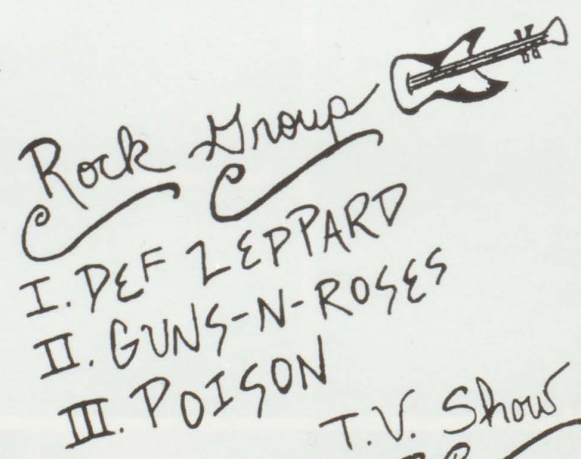 Rock Group
I. DEF LEPPARD
II. GUNS-N-ROSES
III. POISON
T.V. Show